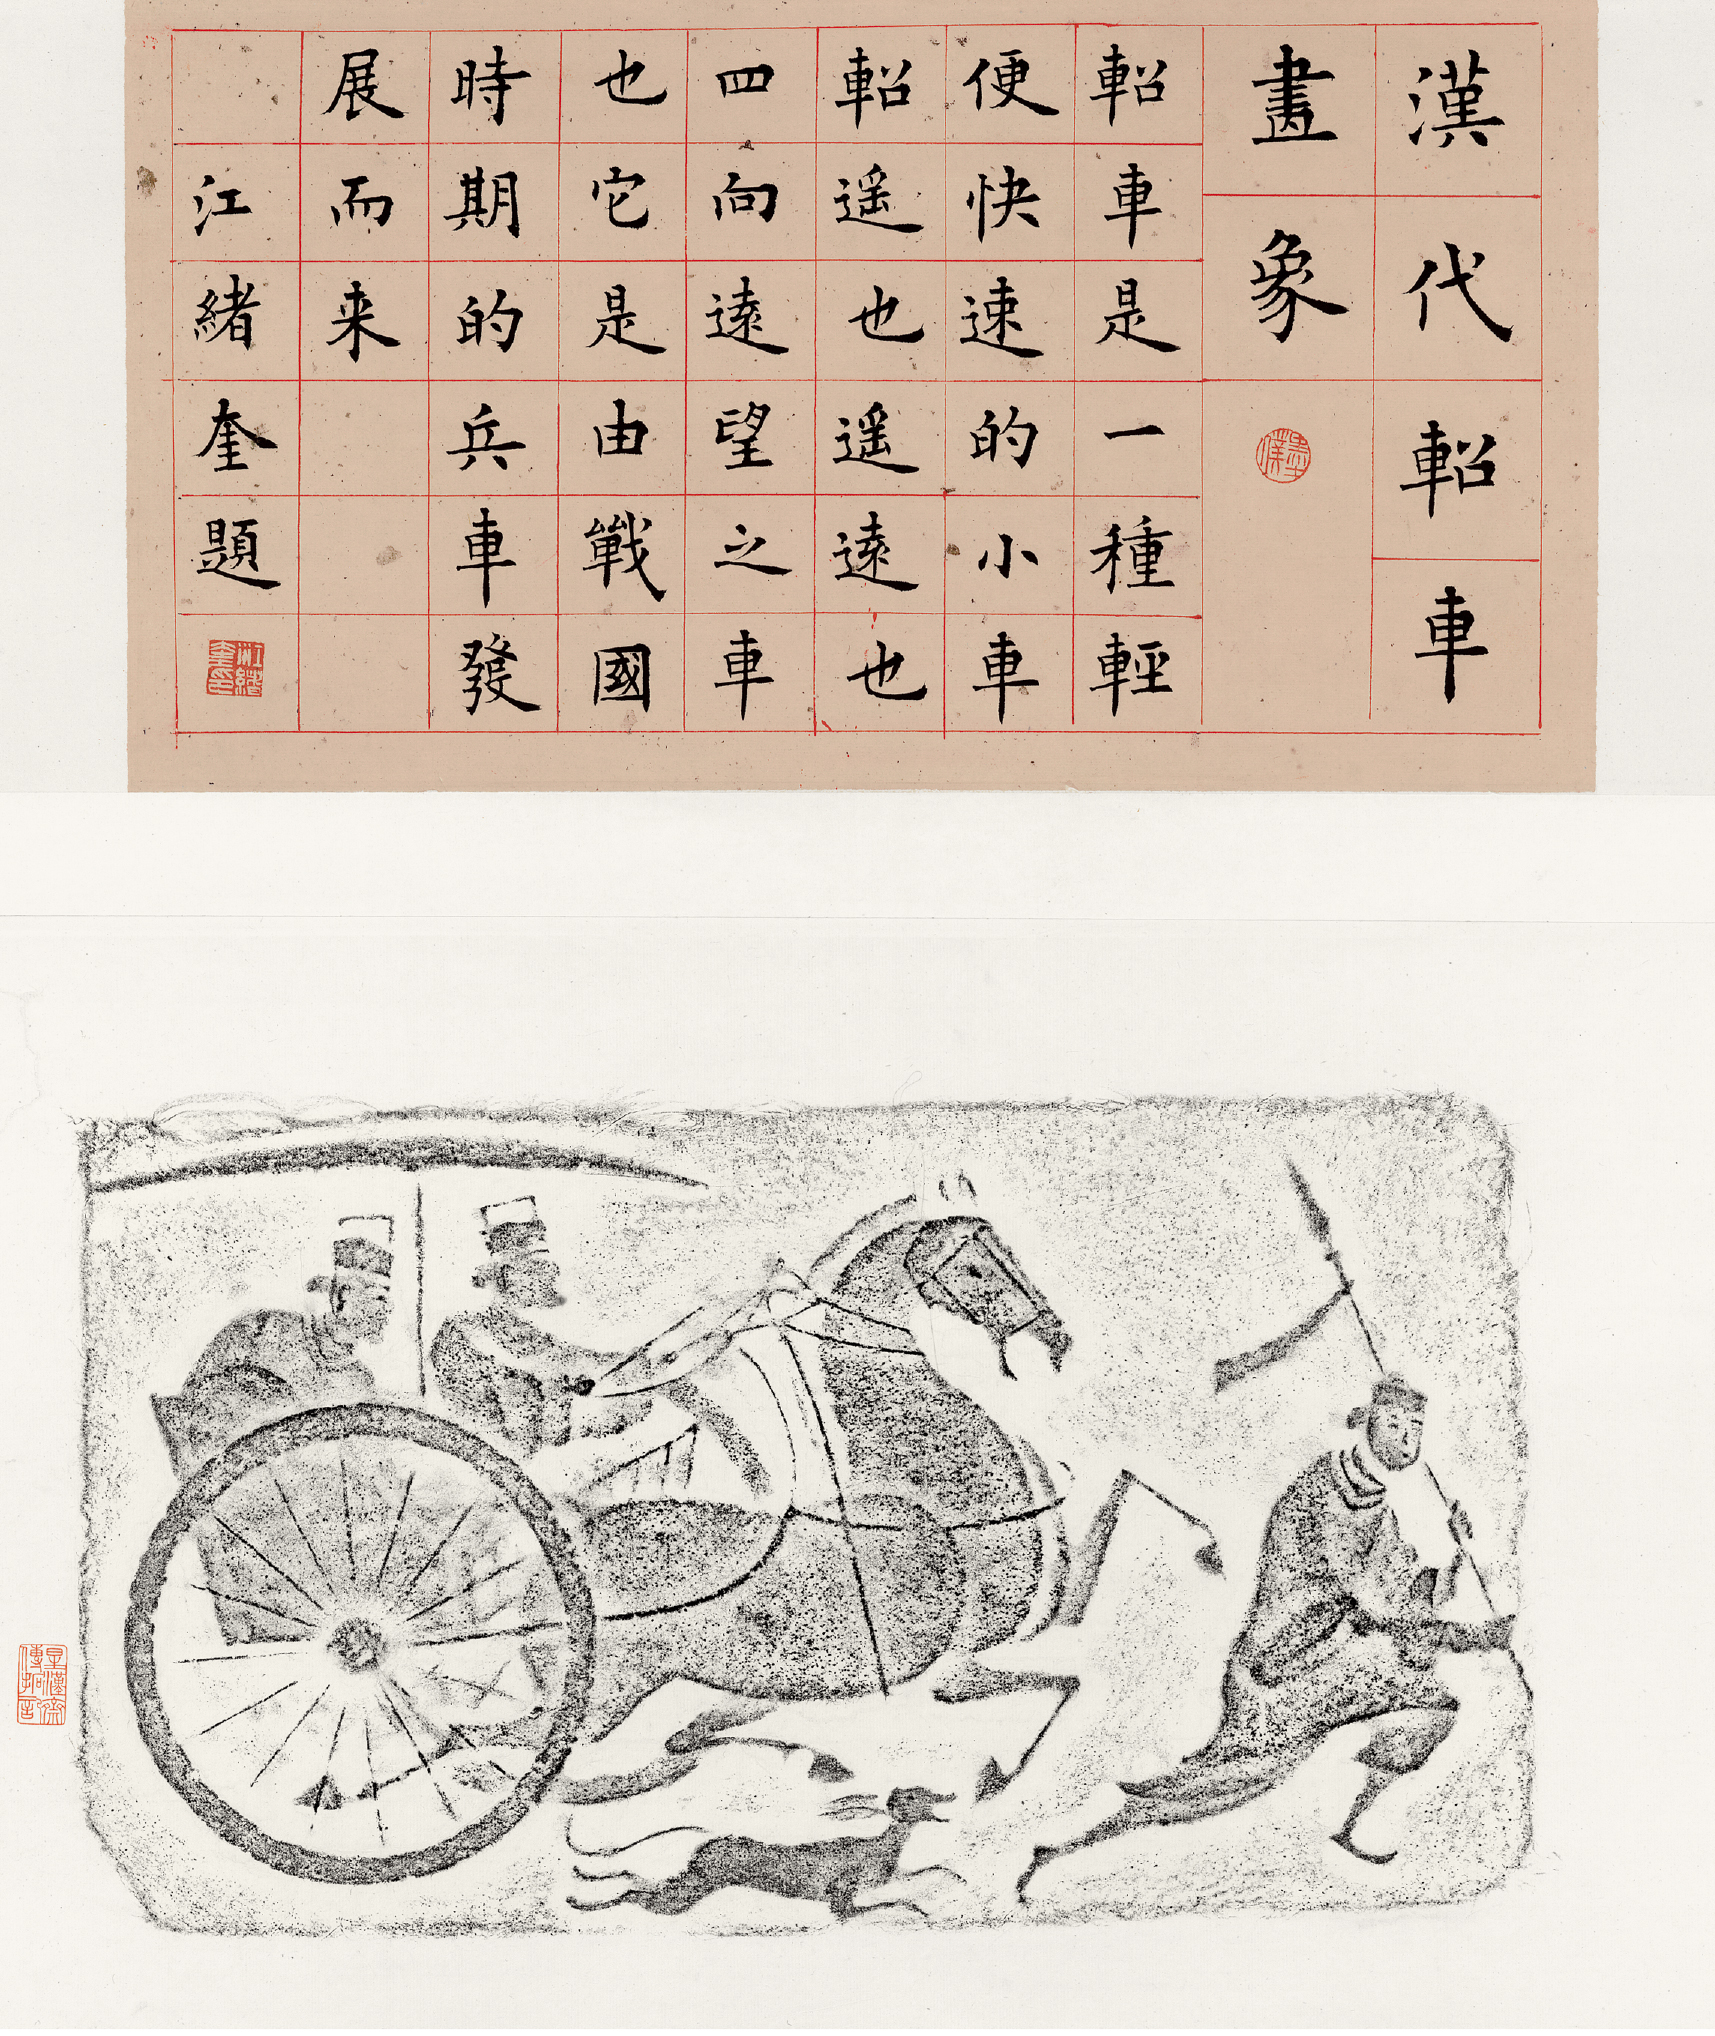 漢代軺車
畫象
軺車是一種輕
便快速的小車
軺遥也遥遠也
四向遠望之車
也它是由戰國
時期的兵車發
展而来
江緒奎題